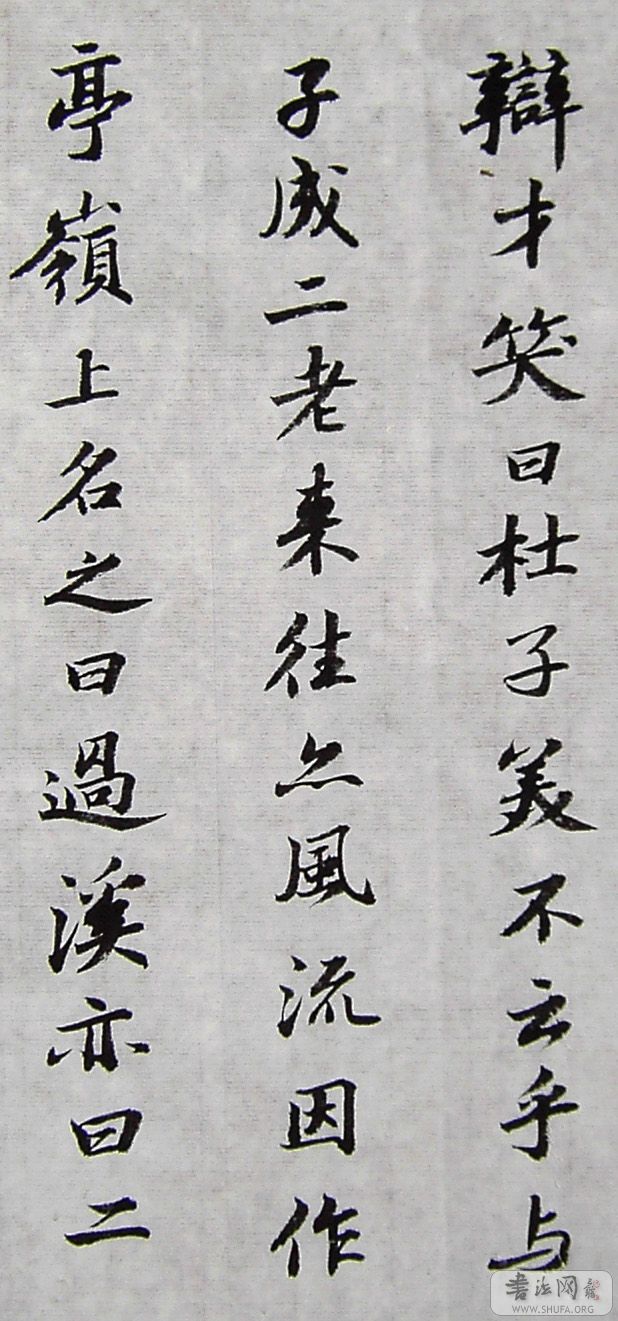 辯才笑曰杜子美不云乎与
子成二老来往亦風流因作
亭嶺上名之曰過溪亦曰二
書法网
WWW.SHUFA.ORG